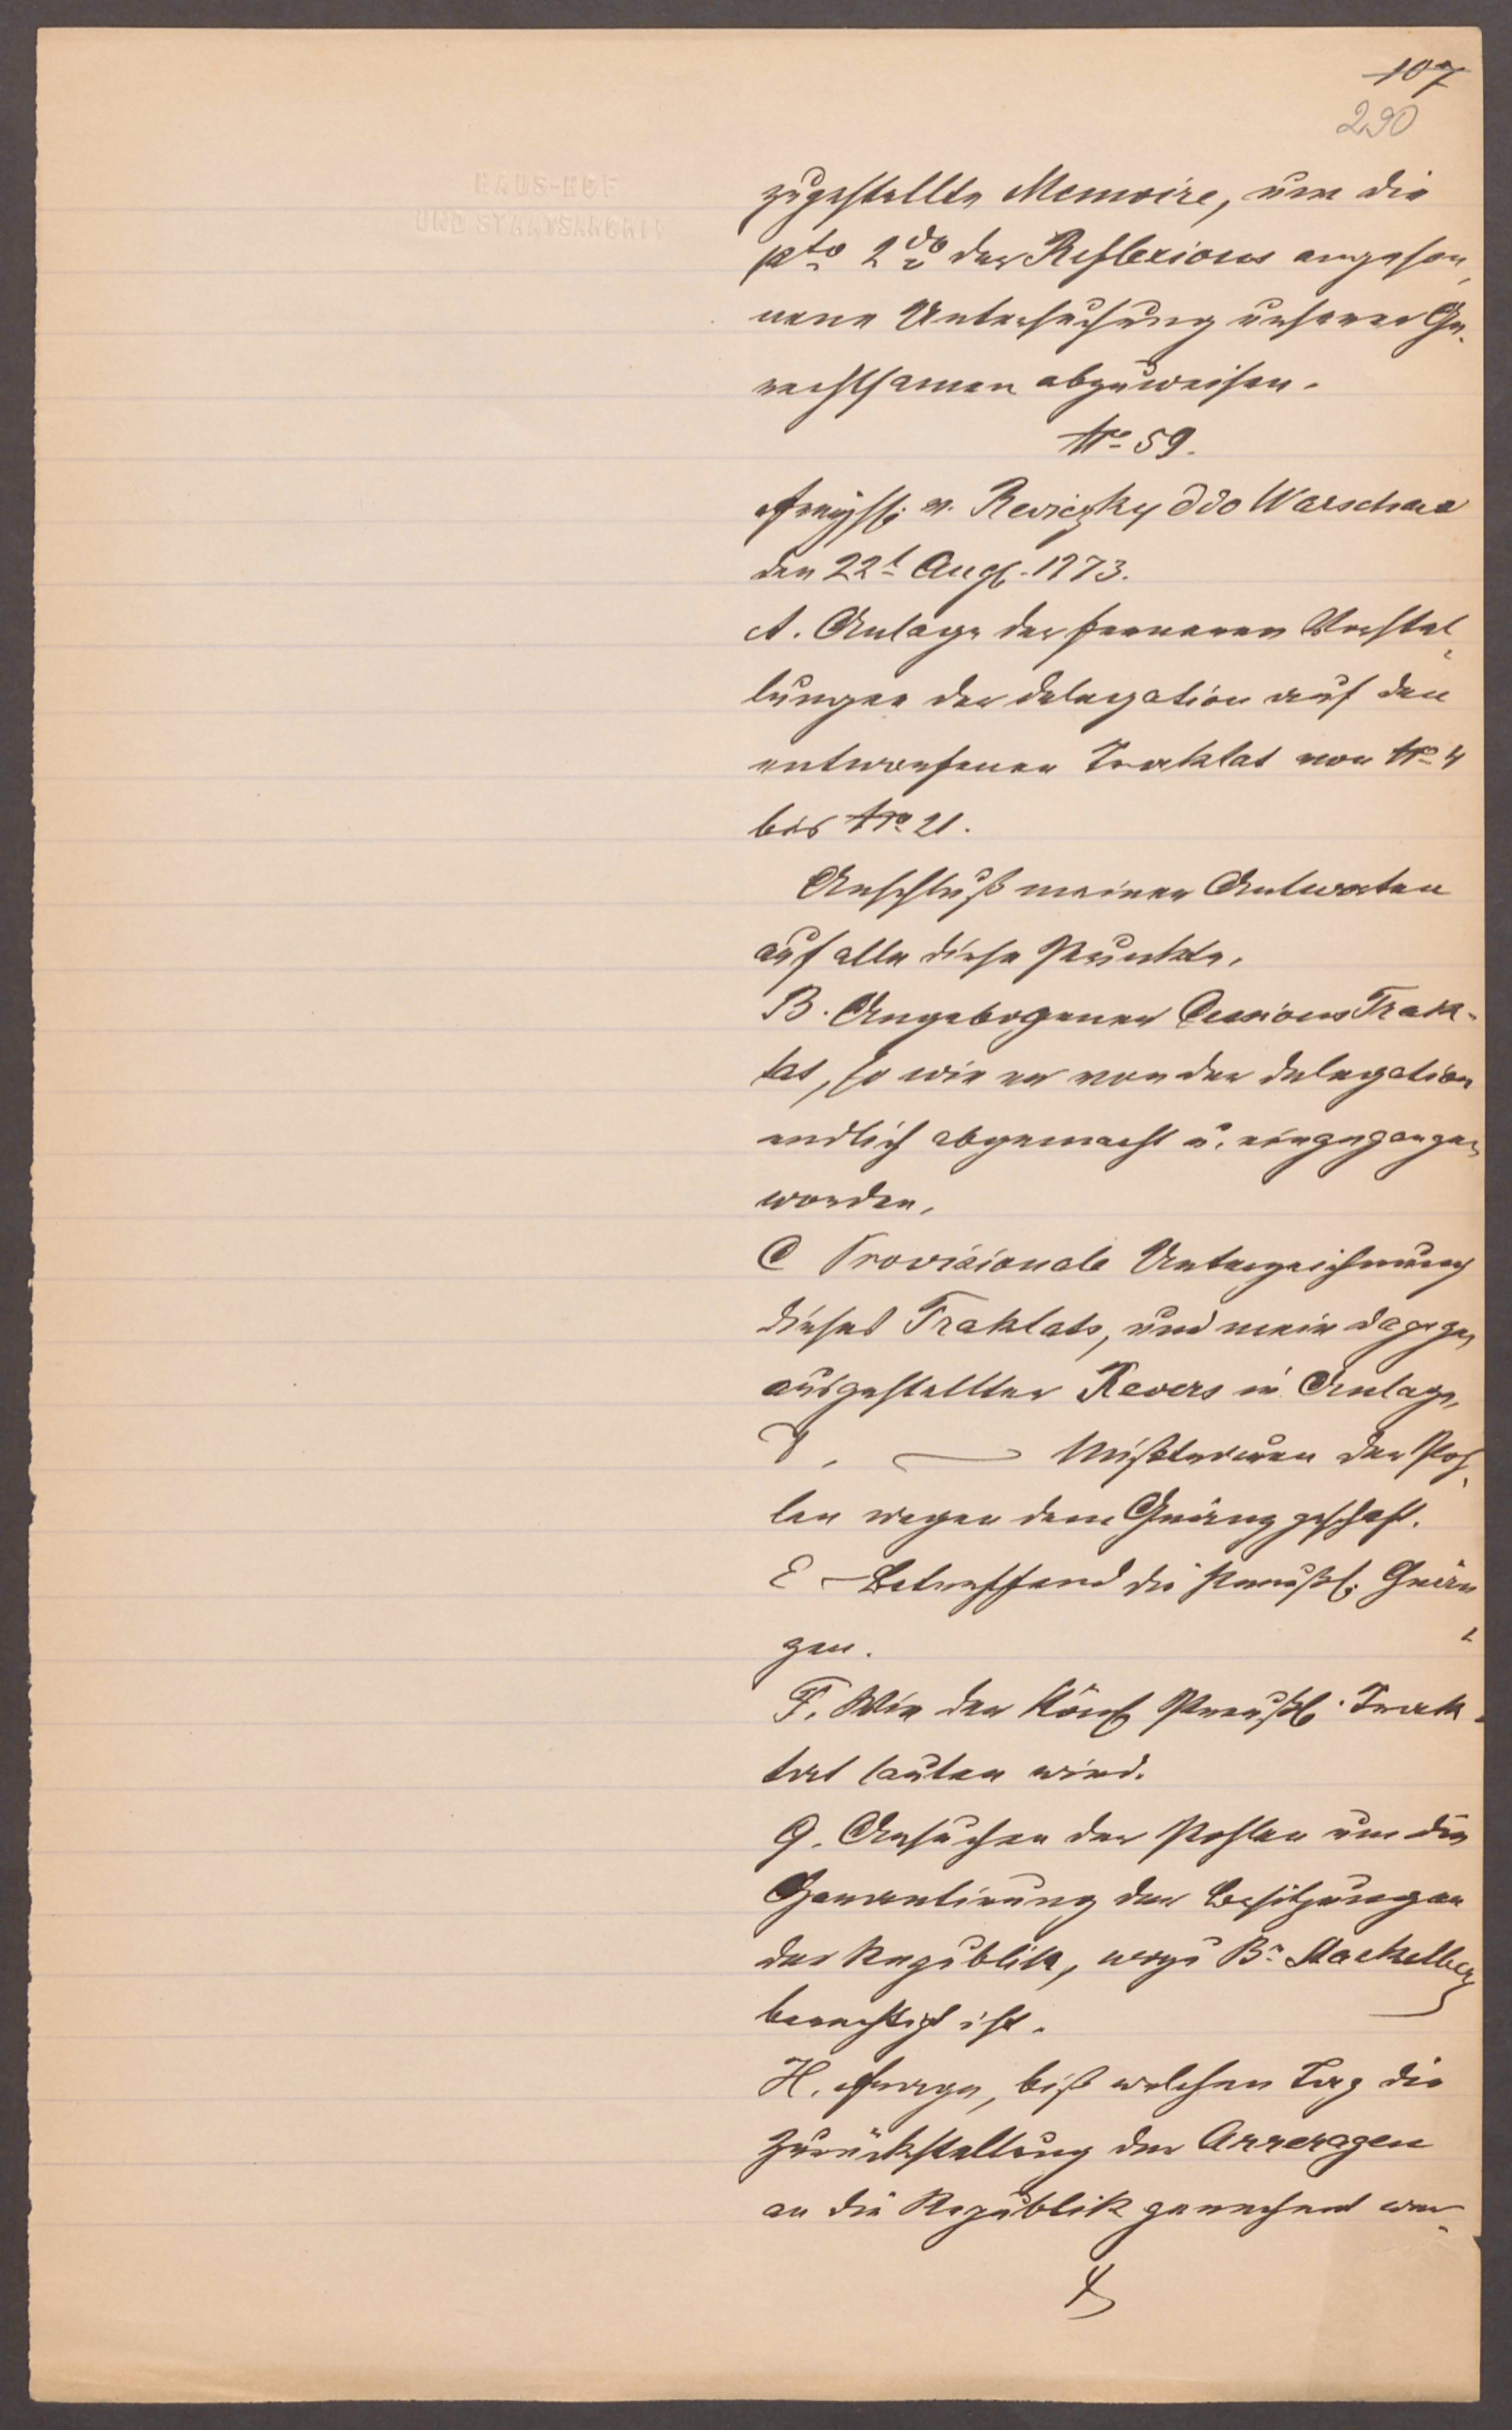 107
290
HAUS-HOF
UND STAATSARCHIV
zugestellte Memoire, um die
pto 2do der Reflexions angeson,
nene Untersuchung unserer Ge-
rechtsamen abzuweisen.
No 59.
v. Reviczky ddo Warschau
den 22t Aug. 1773.
A. Anlage der ferneren Vorstel,
lungen der Delegation auf den
entworfenen Traktat von No 4
bis No 21.
Anschluß meiner Antworten
auf alle diese Punkte.
B. Angebogener Cessions Trak-
tat, so wie er von der Delegation
endlich abgemacht u. eingegangen
worden.
C Provisionale Unterzeichnung
dieses Traktats, und mein dagegen
ausgestellter Revers in Anlage,
D. — Mißtrauen der Poh,
len wegen dem Gränzgeschäft.
E — Betreffend die Preußl. Grän,
zen.
F. Wie der Königl. Preußl. Trak-
tat lauten wird.
G. Ansuchen der Pohlen um die
Garantirung der Besitzungen
der Republik, wozu Bn Stackelberg
berechtigt ist.
H. Frage, biß welchen Tag die
Zurückstellung der Arreragen
an die Republik gerechnet wer-